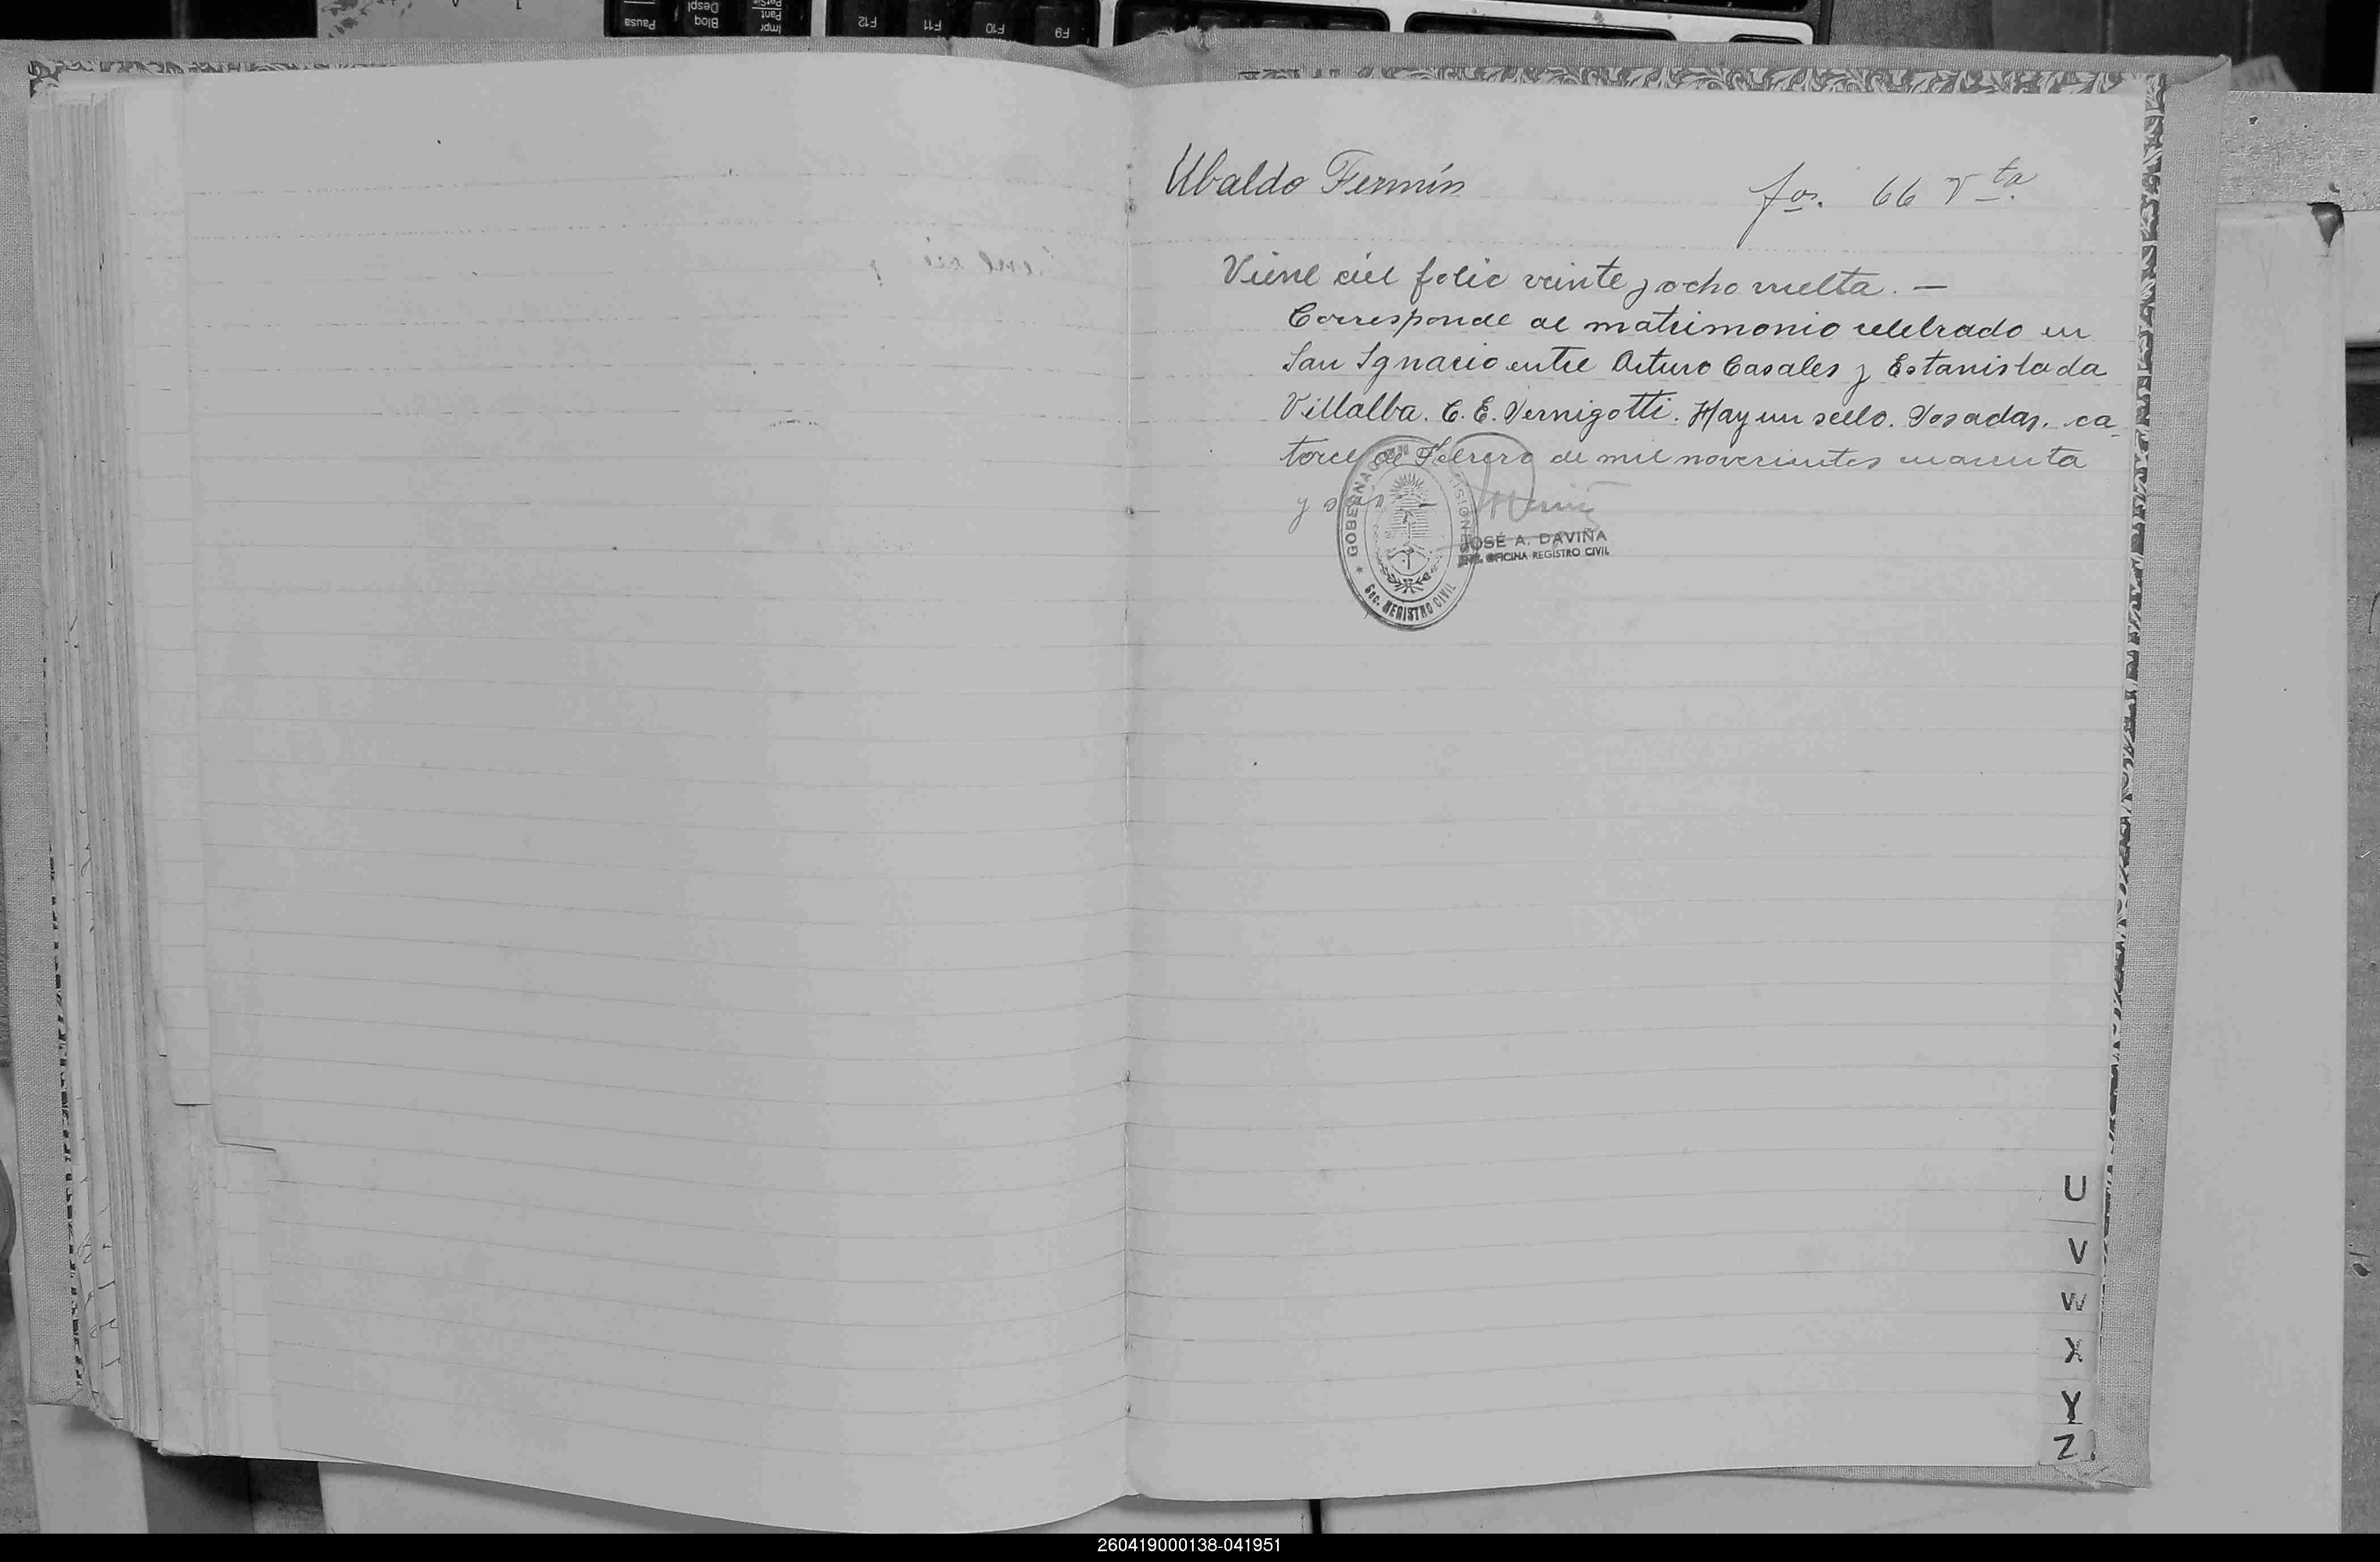 Ubaldo Fermín fos. 66 Vta.
Viene del folio veinte y ocho vuelta. —
Corresponde al matrimonio celebrado en
San Ignacio entre Arturo Casales y Estanislada
Villalba. C. E. Vernigotti. Hay un sello. Posadas, ca-
torce de Febrero de mil novecientos cuarenta
y seis
GOBERNACION MISIONES
Sec. REGISTRO CIVIL
JOSÉ A. DAVIÑA
OFICINA REGISTRO CIVIL
U
V
W
X
Y
Z
Pausa
Bloq
Despl
Impr
Pant
F12
F11
F10
F9
260419000138-041951